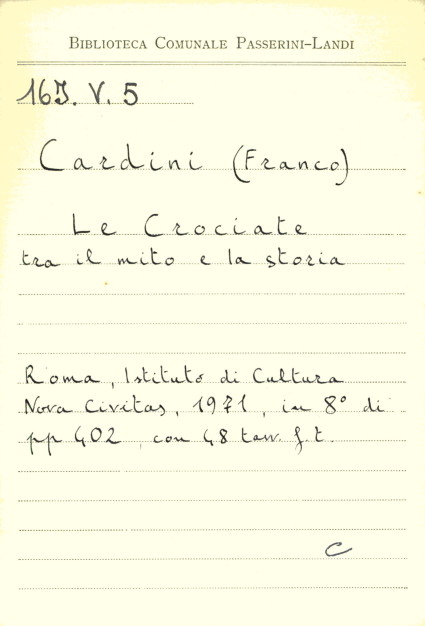 BIBLIOTECA COMUNALE PASSERINI-LANDI
16J. V. 5
Cardini (Franco)
Le Crociate
tra il mito e la storia
Roma, Istituto di Cultura
Nova Civitas, 1971, in 8° di
pp 402, con 48 tav. f. t.
C